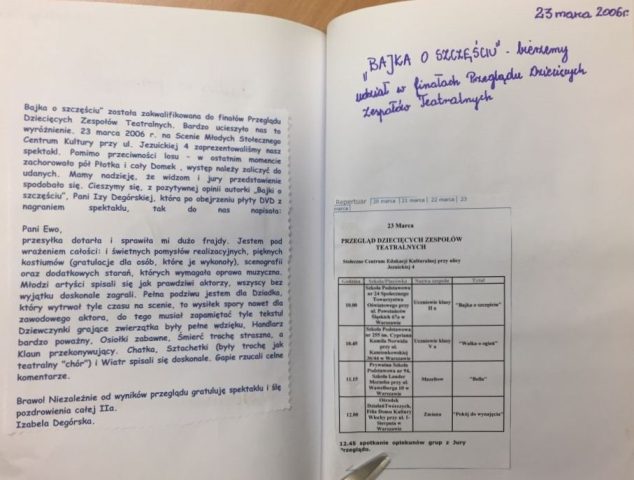 Bajka o szczęściu" została zakwalifikowana do finałów Przeglądu
Dziecięcych Zespołów Teatralnych. Bardzo ucieszyło nas to
wyróżnienie. 23 marca 2006 r. na Scenie Młodych Stołecznego
Centrum Kultury przy ul. Jezuickiej 4 zaprezentowaliśmy nasz
spektakl. Pomimo przeciwności losu - w ostatnim momencie
zachorowała pół Płotka i cały Domek, występ należy zaliczyć do
udanych. Mamy nadzieję, że widzom i jury przedstawienie
spodobało się. Cieszymy się, z pozytywnej opinii autorki „Bajki o
szczęściu", Pani Izy Degórskiej, która po obejrzeniu płyty DVD z
nagraniem spektaklu, tak do nas napisała:
Pani Ewo,
przesyłka dotarła i sprawiła mi dużo frajdy. Jestem pod
wrażeniem całości: i świetnych pomysłów realizacyjnych, pięknych
kostiumów (gratulacje dla osób, które je wykonały), scenografii
oraz dodatkowych starań, których wymagała oprawa muzyczna.
Młodzi artyści spisali się jak prawdziwi aktorzy, wszyscy bez
wyjątku doskonale zagrali. Pełna podziwu jestem dla Dziadka,
który wytrwał tyle czasu na scenie, to wysiłek spory nawet dla
zawodowego aktora, do tego musiał zapamiętać tyle tekstu
Dziewczynki grające zwierzątka były pełne wdzięku, Handlarz
bardzo poważny, Osiołki zabawne, Śmierć trochę straszna, a
Klaun przekonywujący. Chatka, Sztachetki (były trochę jak
teatralny "chór") i Wiatr spisali się doskonale. Gapie rzucali celne
komentarze.
Brawo! Niezależnie od wyników przeglądu gratuluję spektaklu i ślę
pozdrowienia całej IIa.
Izabela Degórska.
23 marca 2006r.
„BAJKA O SZCZĘŚCIU" - bierzemy
udział w finałach Przeglądu Dziecięcych
Zespołów Teatralnych
Repertuar | 20 marca | 21 marca | 22 marca | 23
marca |
23 Marca
PRZEGLĄD DZIECIĘCYCH ZESPOŁÓW
TEATRALNYCH
Stołeczne Centrum Edukacji Kulturalnej przy ulicy
Jezuickiej 4
Godzina Szkoła/Placówka Nazwa zespołu Tytuł
10.00 Szkoła Podstawowa
nr 24 Społecznego
Towarzystwa
Oświatowego przy
ul. Powstańców
Śląskich 67a w
Warszawie Uczniowie klasy
II a "Bajka o szczęściu"
10.45 Szkoła Podstawowa
nr 255 im. Cypriana
Kamila Norwida
przy ul.
Kamionkowskiej
36/44 w Warszawie Uczniowie klasy
V a "Walka o ogień"
11.15 Prywatna Szkoła
Podstawowa nr 94,
przy ul.
Warszawie
12.00 Ośrodek
Filia Domu Kultury
Włochy przy ul. 1-
Sierpnia w
Warszawie Zmiana "Pokój do wynajęcia"
12.45 spotkanie opiekunów grup z Jury
Przeglądu.